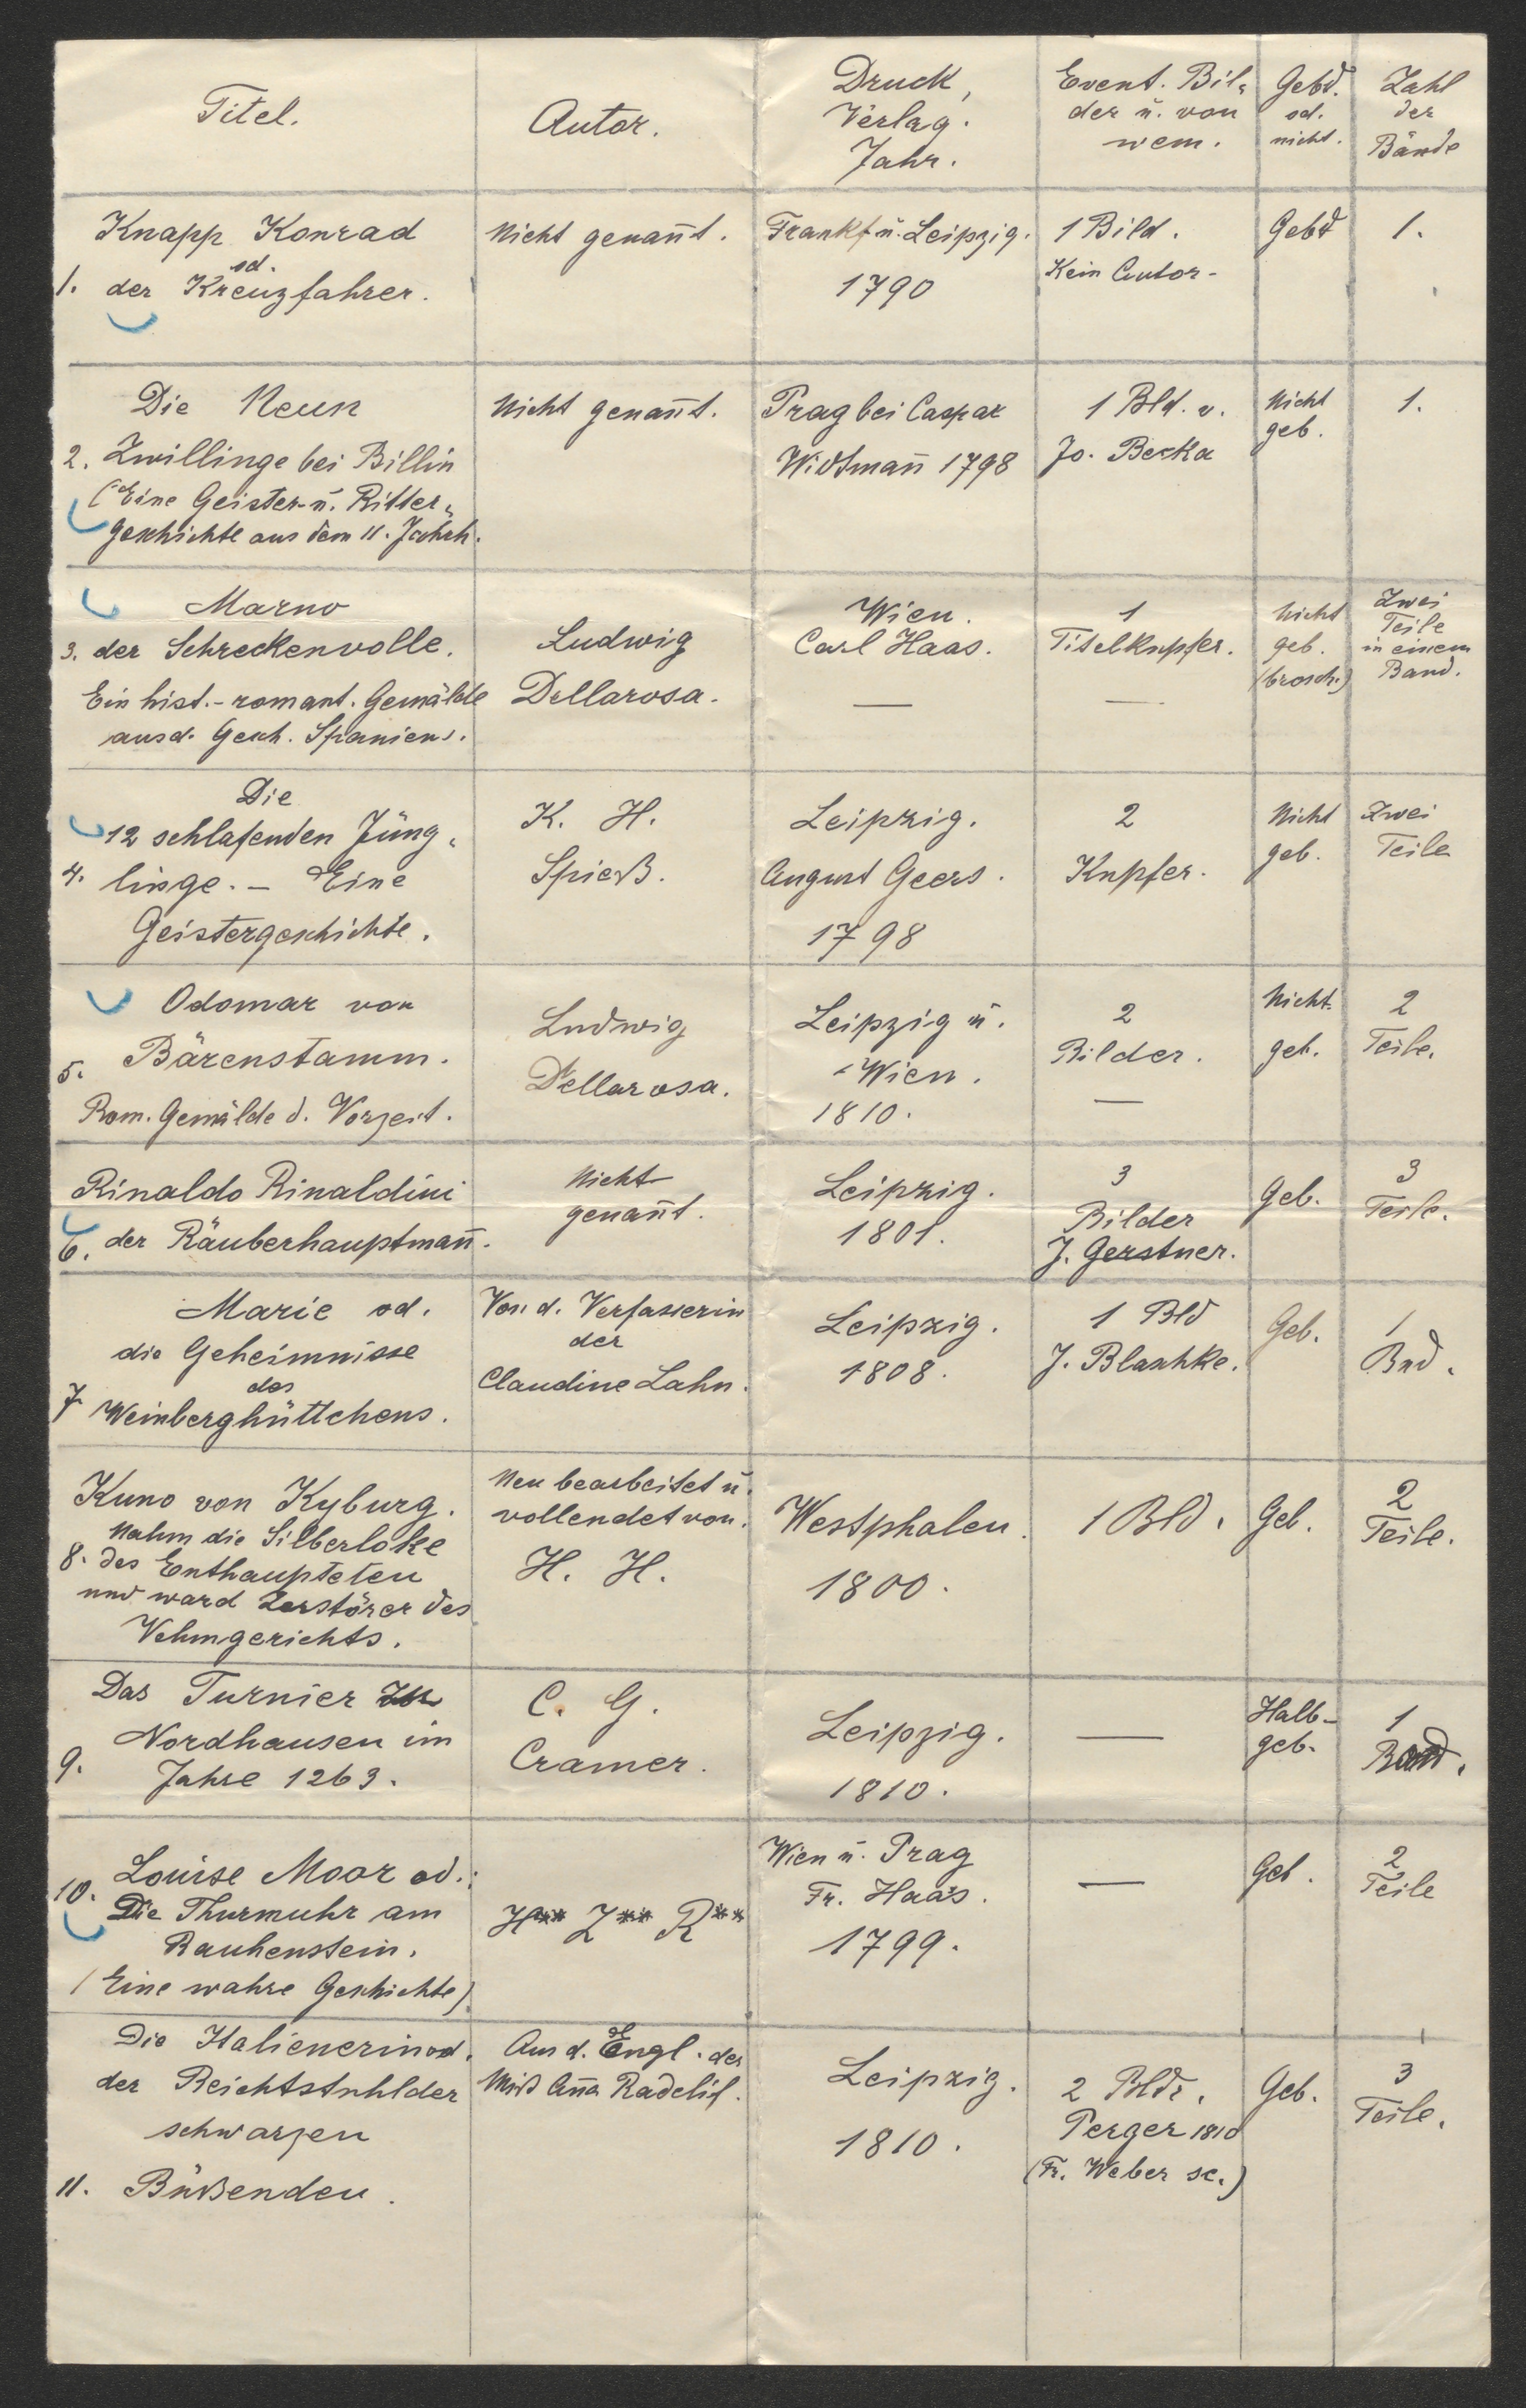 Titel.
Autor.
Druck,
Verlag.
Jahr.
Event. Bil-
der u. von
wem.
Gebd.
od.
nicht.
Zahl
der
Bände
Knapp Konrad
od.
1. der Kreuzfahrer.
Nicht genañt.
Frankf. u. Leipzig.
1790
1 Bild.
Kein Autor-
Gebd
1.
Die Neun
2. Zwillinge bei Billin
(Eine Geister- u. Ritter-
geschichte aus dem 11. Jahrh.
Nicht genañt.
Prag bei Caspar
Widtmañ 1798
1 Bld. v.
Jo. Becka
Nicht
geb.
1.
Marno
3. der Schreckenvolle.
Ein hist.-romant. Gemälde
aus d. Gesch. Spaniens.
Ludwig
Dellarosa.
Wien.
Carl Haas.
—
1
Titelkupfer.
—
Nicht
geb.
(brosch.)
Zwei
Teile
in einem
Band.
Die
12 schlafenden Jüng-
4. linge. — Eine
Geistergeschichte.
K. H.
Spieß.
Leipzig.
August Geers.
1798
2
Kupfer.
Nicht
geb.
Zwei
Teile
Odomar von
5. Bärenstamm.
Rom. Gemälde d. Vorzeit.
Ludwig
Dellarosa.
Leipzig u.
Wien.
1810.
2
Bilder.
—
Nicht
geb.
2
Teile.
Rinaldo Rinaldini
6. der Räuberhauptmañ.
Nicht
genañt.
Leipzig.
1801.
3
Bilder
J. Gerstner.
Geb.
3
Teile.
Marie od.
die Geheimnisse
des
7 Weinberghüttchens.
Von d. Verfasserin
der
Claudine Lahn.
Leipzig.
1808.
1 Bld
J. Blaschke.
Geb.
1
Bnd.
Kuno von Kyburg.
Nahm die Silberloke
8. des Enthaupteten
und ward Zerstörer des
Vehmgerichts.
Neu bearbeitet u.
vollendet von.
H. H.
Westphalen.
1800.
1 Bld.
Geb.
2
Teile.
Das Turnier zu
Nordhausen im
9. Jahre 1263.
C. G.
Cramer.
Leipzig.
1810.
—
Halb-
geb.
1
Band.
10. Louise Moor od.:
Die Thurmuhr am
Rauhenstein.
(Eine wahre Geschichte)
H** Z** R**
Wien u. Prag
Fr. Haas.
1799.
—
Geb.
2
Teile
Die Italienerin od.
der Beichtstuhl der
schwarzen
11. Büßenden.
Aus d. Engl. der
Miß Aña Radclif.
Leipzig.
1810.
2 Bldr.
Perger 1810
(Fr. Weber sc.)
Geb.
3
Teile.